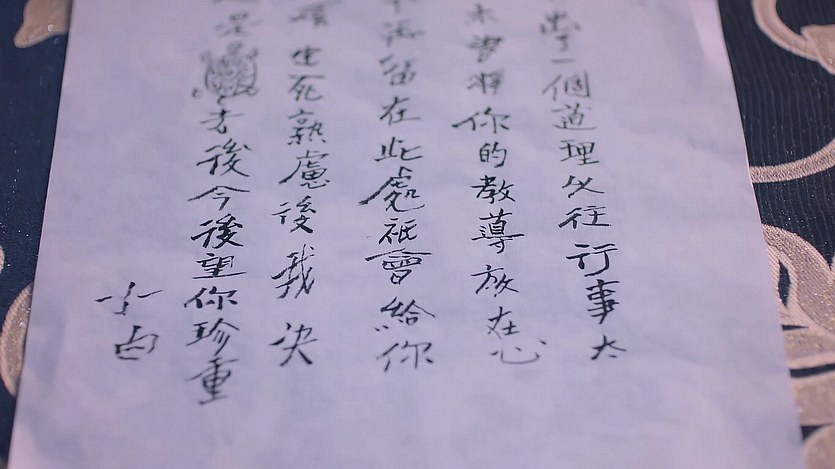 了一個道理以往行事太
未曾將你的教導放在心
再留在此處祇會給你
生死熟慮後我決
是後今後望你珍重
小白